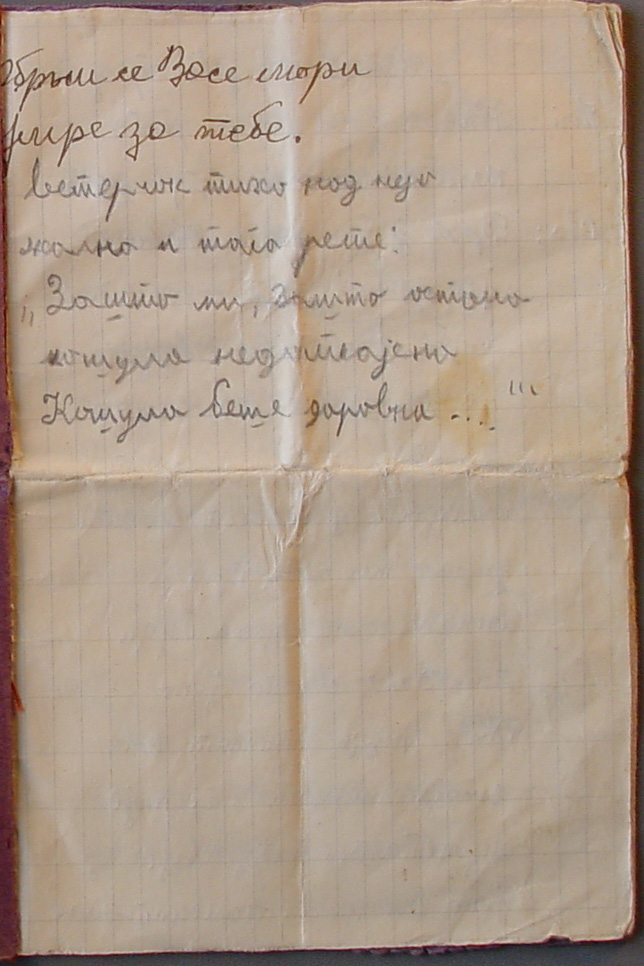 Обрни се Васе мори
умре за тебе.
ветерчок тихо над неа
жално и таго рете:
„Зашто ми, зашто остана
кошула недошиајена
Кошула беше даровна ..."